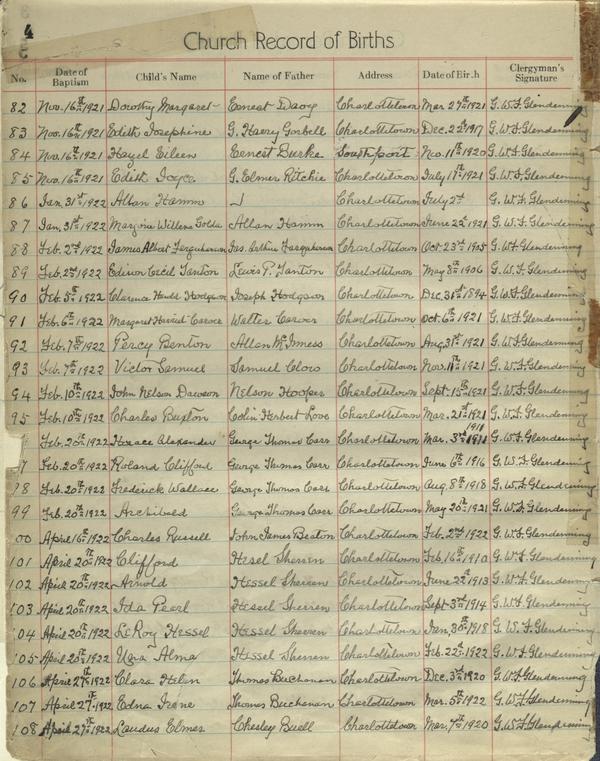 4
Church Record of Births
No. Date of Baptism Child's Name Name of Father Address Date of Birth Clergyman's Signature
82 Nov. 16th 1921 Dorothy Margaret Ernest Charlottetown Mar 27th 1921 G.W.F. Glendenning
83 Nov. 16th 1921 Edith Josephine G. Harry Gorbell Charlottetown Dec. 22nd 1917 G.W.F. Glendenning
84 Nov. 16th 1921 Hazel Eileen Ernest Burke Southport Nov. 11th 1920 G.W.F. Glendenning
85 Nov. 16th 1921 Edith Joyce G. Elmer Ritchie Charlottetown July 17th 1921 G.W.F. Glendenning
86 Jan. 31st 1922 Allan Hamm Charlottetown July 2nd G.W.F. Glendenning
87 Jan. 31st 1922 Marjorie Willena Golda Allan Hamm Charlottetown June 22nd 1921 G.W.F. Glendenning
88 Feb. 2nd 1922 James Albert Farquharson Jas. Arthur Farquharson Charlottetown Oct 23rd 1905 G.W.F. Glendenning
89 Feb. 2nd 1922 Cecil Tanton Lewis P. Tanton Charlottetown May 8th 1906 G.W.F. Glendenning
90 Feb. 5th 1922 Clarence Hodgson Joseph Hodgson Charlottetown Dec. 31st 1894 G.W.F. Glendenning
91 Feb. 6th 1922 Margaret Harriet Carver Walter Carver Charlottetown Oct. 6th 1921 G.W.F. Glendenning
92 Feb. 7th 1922 Percy Benton Allan McInness Charlottetown Aug. 31st 1921 G.W.F. Glendenning
93 Feb. 7th 1922 Victor Samuel Samuel Clow Charlottetown Nov. 11th 1921 G.W.F. Glendenning
94 Feb. 10th 1922 John Nelson Dawson Nelson Hooper Charlottetown Sept. 15th 1921 G.W.F. Glendenning
95 Feb. 10th 1922 Charles Buxton Colin Herbert Love Charlottetown Mar. 21st 1921 G.W.F. Glendenning
Feb. 20th 1922 Horace Alexander George Thomas Carr Charlottetown Mar. 3rd 1911 G.W.F. Glendenning
97 Feb. 20th 1922 Roland Clifford George Thomas Carr Charlottetown June 6th 1916 G.W.F. Glendenning
98 Feb. 20th 1922 Frederick Wallace George Thomas Carr Charlottetown Aug. 8th 1918 G.W.F. Glendenning
99 Feb. 20th 1922 Archibald George Thomas Carr Charlottetown May 20th 1921 G.W.F. Glendenning
00 April 16th 1922 Charles Russell John James Beaton Charlottetown Feb. 2nd 1922 G.W.F. Glendenning
101 April 20th 1922 Clifford Hesel Sherren Charlottetown Feb. 16th 1910 G.W.F. Glendenning
102 April 20th 1922 Arnold Hessel Sherren Charlottetown June 22nd 1913 G.W.F. Glendenning
103 April 20th 1922 Ida Pearl Hessel Sherren Charlottetown Sept 3rd 1914 G.W.F. Glendenning
104 April 20th 1922 LeRoy Hessel Hessel Sherren Charlottetown Jan. 30th 1918 G.W.F. Glendenning
105 April 20th 1922 Alma Hessel Sherren Charlottetown Feb. 22nd 1922 G.W.F. Glendenning
106 April 27th 1922 Clara Helen Thomas Buchanan Charlottetown Dec. 3rd 1920 G.W.F. Glendenning
107 April 27th 1922 Edna Irene Thomas Buchanan Charlottetown Mar. 5th 1922 G.W.F. Glendenning
108 April 27th 1922 Elmer Chesley Buell Charlottetown Mar. 7th 1920 G.W.F. Glendenning